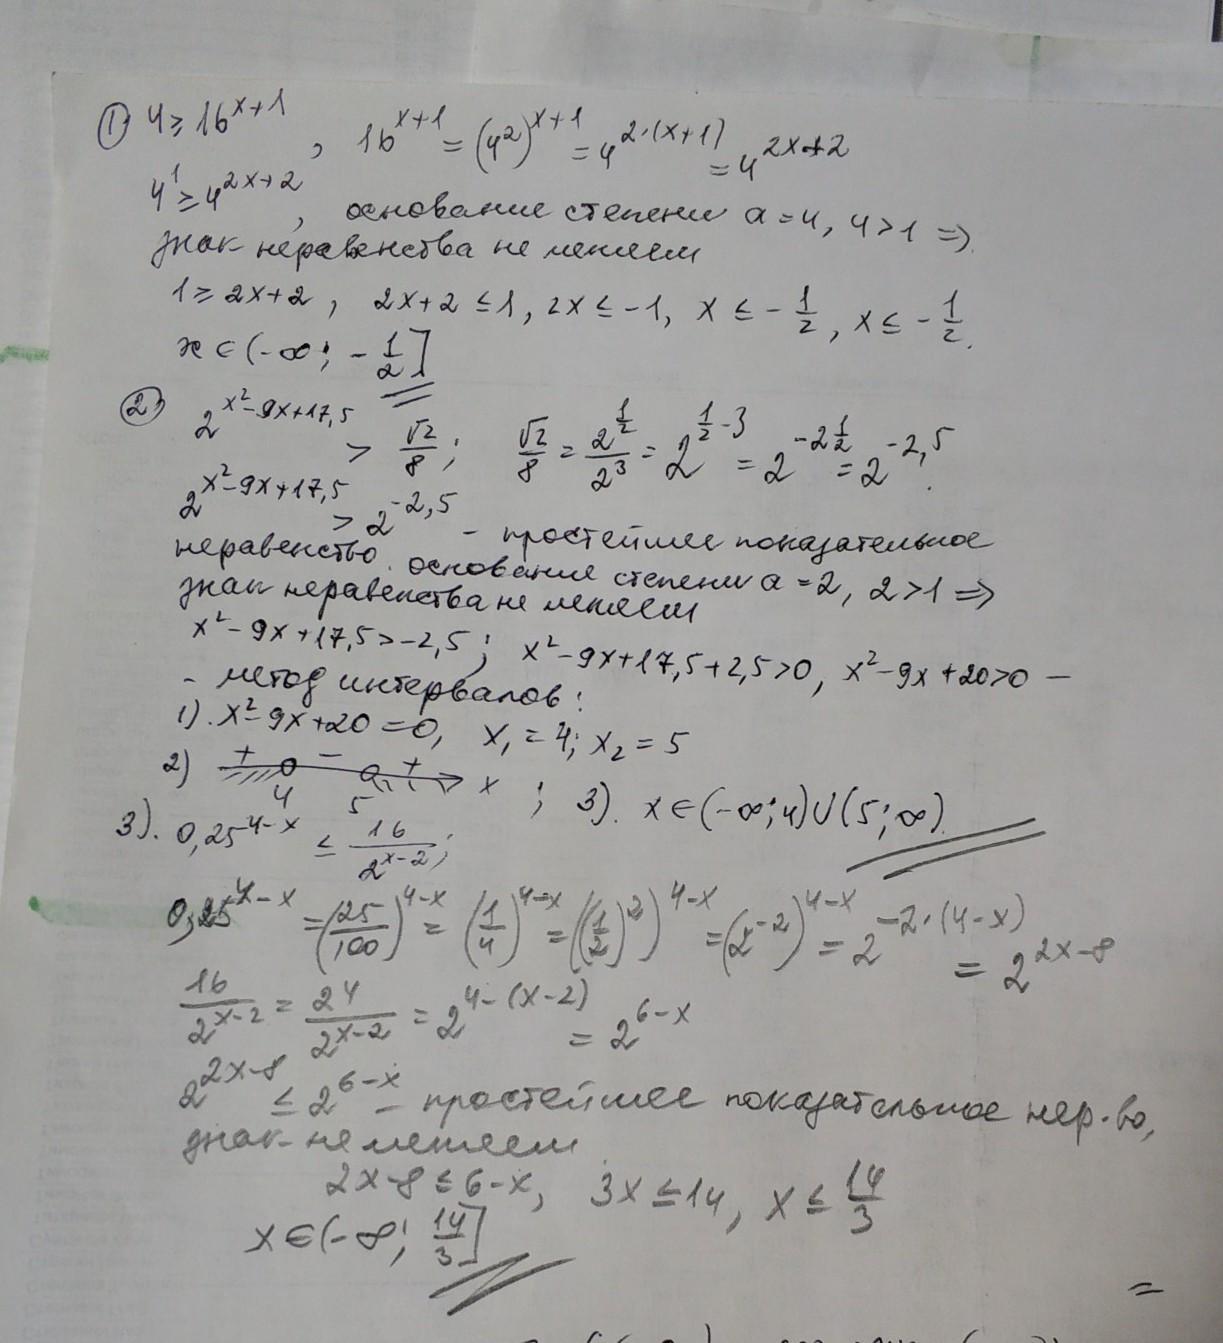 ① 4 ≥ 16^{x+1}, 16^{x+1} = (4^2)^{x+1} = 4^{2·(x+1)} = 4^{2x+2}
4^1 ≥ 4^{2x+2}, основание степени a = 4, 4 > 1 ⇒
знак неравенства не меняем
1 ≥ 2x+2, 2x+2 ≤ 1, 2x ≤ -1, x ≤ -1/2, x ≤ -1/2.
x ∈ (-∞; -1/2]
② 2^{x^2-9x+17,5} > √2/8; √2/8 = 2^{1/2}/2^3 = 2^{1/2-3} = 2^{-2 1/2} = 2^{-2,5}.
2^{x^2-9x+17,5} > 2^{-2,5} - простейшее показательное
неравенство. основание степени a = 2, 2 > 1 ⇒
знак неравенства не меняем
x^2-9x+17,5 > -2,5; x^2-9x+17,5+2,5 > 0, x^2-9x+20 > 0 -
- метод интервалов:
1). x^2-9x+20 = 0, x_1 = 4; x_2 = 5
2) + 4 - 5 + x ; 3). x ∈ (-∞; 4) U (5; ∞)
3). 0,25^{4-x} ≤ 16/2^{x-2};
0,25^{4-x} = (25/100)^{4-x} = (1/4)^{4-x} = ((1/2)^2)^{4-x} = (2^{-2})^{4-x} = 2^{-2·(4-x)} = 2^{2x-8}
16/2^{x-2} = 2^4/2^{x-2} = 2^{4-(x-2)} = 2^{6-x}
2^{2x-8} ≤ 2^{6-x} - простейшее показательное нер-во,
знак не меняем
2x-8 ≤ 6-x, 3x ≤ 14, x ≤ 14/3
x ∈ (-∞; 14/3]
=